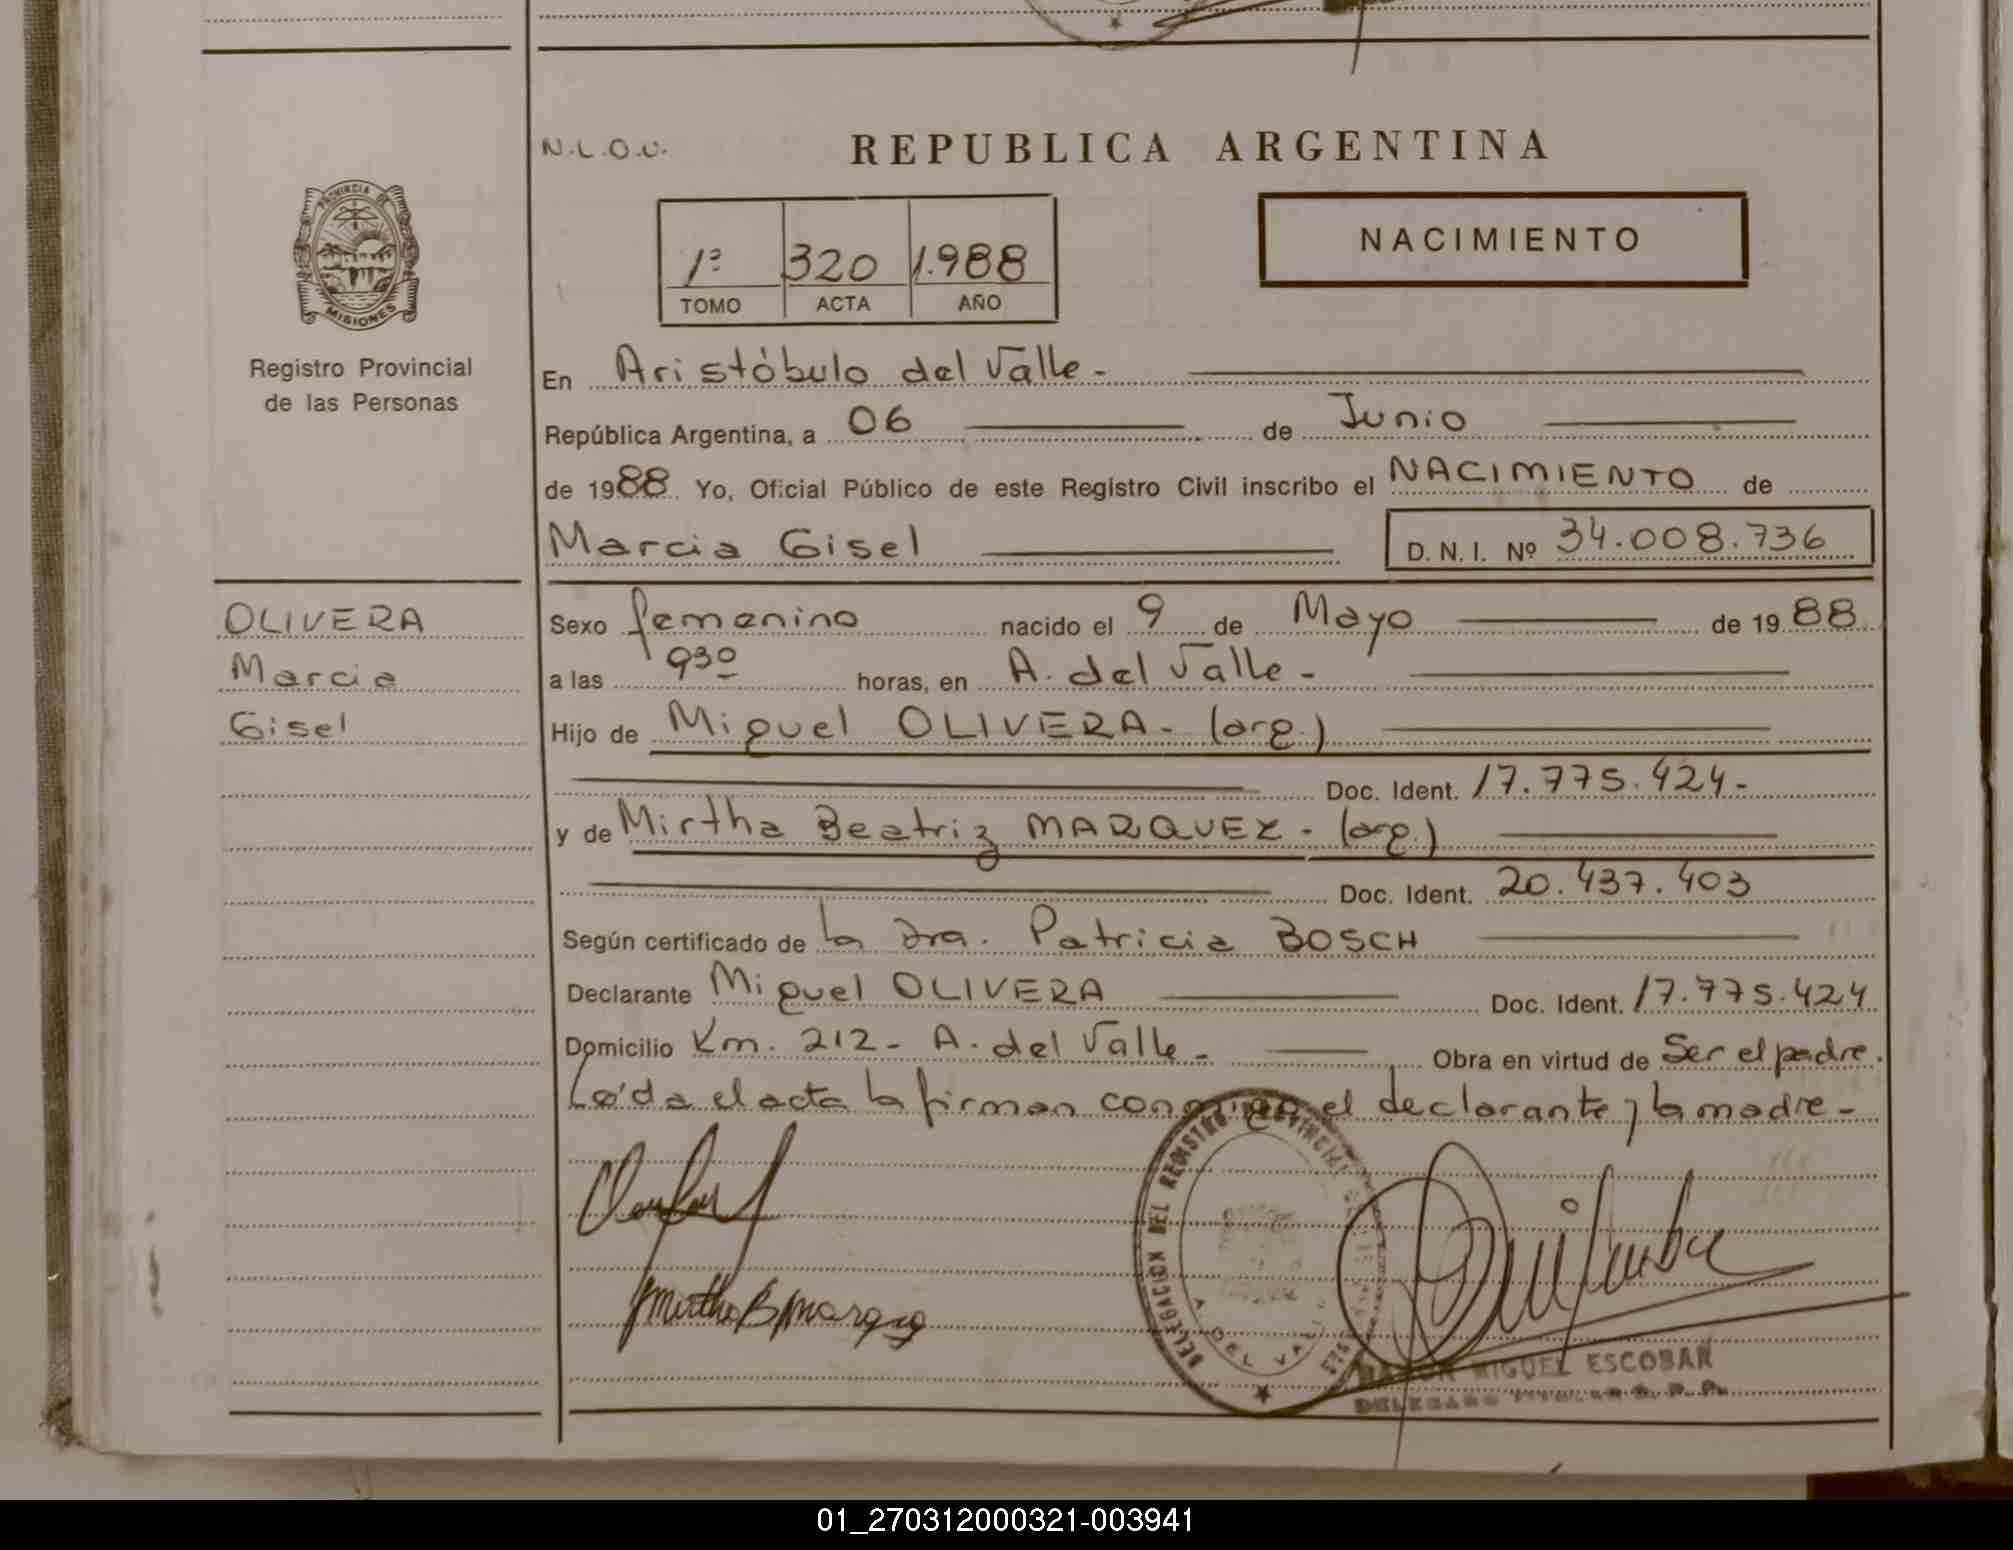 N.L.O.U.
REPUBLICA ARGENTINA
PROVINCIA DE
MISIONES
Registro Provincial
de las Personas
1º 320 1.988
TOMO ACTA AÑO
NACIMIENTO
En Aristóbulo del Valle.-
República Argentina, a 06 de Junio
de 1988. Yo, Oficial Público de este Registro Civil inscribo el NACIMIENTO de
Marcia Gisel D. N. I. Nº 34.008.736
OLIVERA
Marcia
Gisel
Sexo femenino nacido el 9 de Mayo de 1988.
a las 930 horas, en A. del Valle.-
Hijo de Miguel OLIVERA.- (arg.)
Doc. Ident. 17.775.424.-
y de Mirtha Beatriz MARQUEZ.- (arg.)
Doc. Ident. 20.437.403
Según certificado de la Dra. Patricia BOSCH
Declarante Miguel OLIVERA Doc. Ident. 17.775.424
Domicilio Km. 212.- A. del Valle.- Obra en virtud de Ser el padre.
Leída el acta la firman conmigo el declarante y la madre.-
Mirtha B Marquez
DELEGACION DEL REGISTRO PROVINCIAL
A. DEL VALLE
RAMON MIGUEL ESCOBAR
DELEGADO TITULAR R. P. P.
01_270312000321-003941